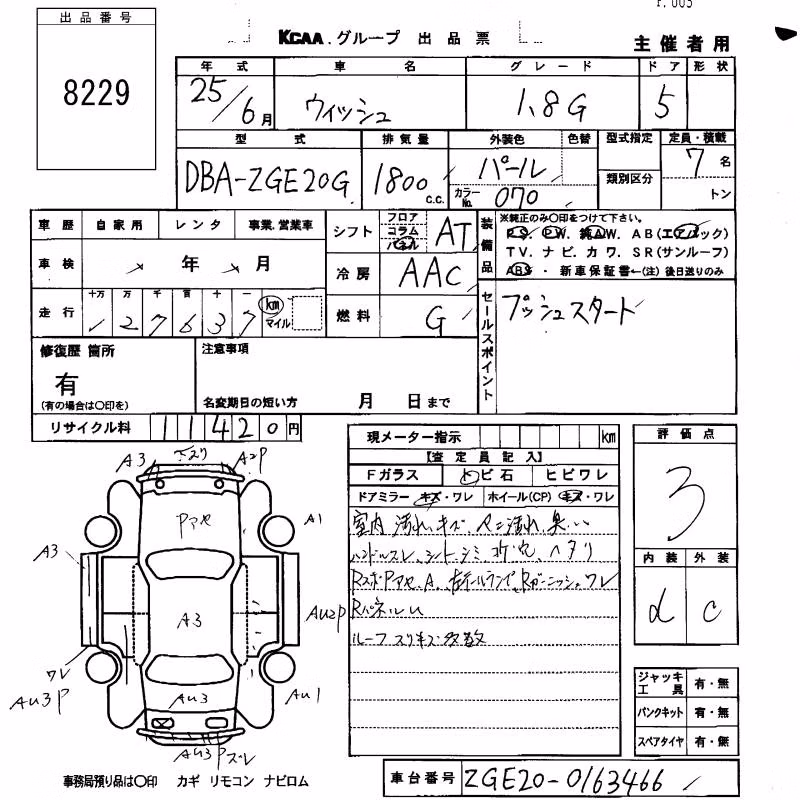 出品番号
8229
KCAA.グループ 出品票
主催者用
年式 車名 グレード ドア 形状
25/6月 ウィッシュ 1.8G 5
型式 排気量 外装色 色替 型式指定 定員・積載
DBA-ZGE20G 1800c.c. パール 7名
カラーNo. 070 類別区分 トン
車歴 自家用 レンタ 事業.営業車
シフト フロア コラム パネル AT
装備品
※純正のみ○印をつけて下さい。
PS. PW. 純AW. AB(エアバック)
TV. ナビ. カワ. SR(サンルーフ)
ABS・新車保証書←(注)後日送りのみ
車検 年 月
冷房 AAC
走行 十万 万 千 百 十 一
127637 km マイル
燃料 G
セールスポイント
プッシュスタート
修復歴 箇所 注意事項
有
(有の場合は○印を)
名変期日の短い方 月 日まで
リサイクル料 11420円
現メーター指示 km
【査定員記入】
Fガラス トビ石 ヒビワレ
ドアミラー キズ・ワレ ホイール(CP) キズ・ワレ
室内 汚れ、キズ、
ハンドルスレ、シートシミ コゲ穴 ヘタリ
ワレ
Rパネルu
ルーフ スリキズ多数
評価点
3
内装 外装
d c
A3 A2P
Pアセ
A1
A3
A3
AU2P
ワレ
AU3P
AU3
AU1
AU3P ズレ
ジャッキ工具 有・無
パンクキット 有・無
スペアタイヤ 有・無
事務局預り品は○印 カギ リモコン ナビロム
車台番号 ZGE20-0163466